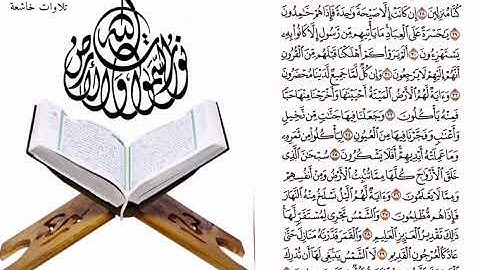 تلاوات خاشعة
الله نور السموات والأرض
كُنَّا مُنزِلِينَ ٢٨ إِن كَانَتْ إِلَّا صَيْحَةً وَٰحِدَةً فَإِذَا هُمْ خَٰمِدُونَ
٢٩ يَٰحَسْرَةً عَلَى ٱلْعِبَادِ مَا يَأْتِيهِم مِّن رَّسُولٍ إِلَّا كَانُوا۟ بِهِۦ
يَسْتَهْزِءُونَ ٣٠ أَلَمْ يَرَوْا۟ كَمْ أَهْلَكْنَا قَبْلَهُم مِّنَ ٱلْقُرُونِ
أَنَّهُمْ إِلَيْهِمْ لَا يَرْجِعُونَ ٣١ وَإِن كُلٌّ لَّمَّا جَمِيعٌ لَّدَيْنَا مُحْضَرُونَ
٣٢ وَءَايَةٌ لَّهُمُ ٱلْأَرْضُ ٱلْمَيْتَةُ أَحْيَيْنَٰهَا وَأَخْرَجْنَا مِنْهَا حَبًّا
فَمِنْهُ يَأْكُلُونَ ٣٣ وَجَعَلْنَا فِيهَا جَنَّٰتٍ مِّن نَّخِيلٍ
وَأَعْنَٰبٍ وَفَجَّرْنَا فِيهَا مِنَ ٱلْعُيُونِ ٣٤ لِيَأْكُلُوا۟ مِن ثَمَرِهِۦ
وَمَا عَمِلَتْهُ أَيْدِيهِمْ أَفَلَا يَشْكُرُونَ ٣٥ سُبْحَٰنَ ٱلَّذِى
خَلَقَ ٱلْأَزْوَٰجَ كُلَّهَا مِمَّا تُنۢبِتُ ٱلْأَرْضُ وَمِنْ أَنفُسِهِمْ
وَمِمَّا لَا يَعْلَمُونَ ٣٦ وَءَايَةٌ لَّهُمُ ٱلَّيْلُ نَسْلَخُ مِنْهُ ٱلنَّهَارَ
فَإِذَا هُم مُّظْلِمُونَ ٣٧ وَٱلشَّمْسُ تَجْرِى لِمُسْتَقَرٍّ لَّهَا
ذَٰلِكَ تَقْدِيرُ ٱلْعَزِيزِ ٱلْعَلِيمِ ٣٨ وَٱلْقَمَرَ قَدَّرْنَٰهُ مَنَازِلَ حَتَّىٰ
عَادَ كَٱلْعُرْجُونِ ٱلْقَدِيمِ ٣٩ لَا ٱلشَّمْسُ يَنۢبَغِى لَهَآ أَن تُدْرِكَ